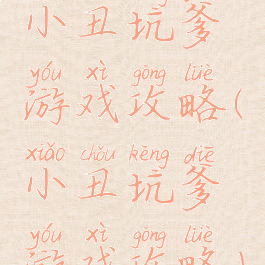 小丑坑爹
yóu xì gōng lüè
游戏攻略(
xiǎo chǒu kēng diē
小丑坑爹
yóu xì gōng lüè
游戏攻略)